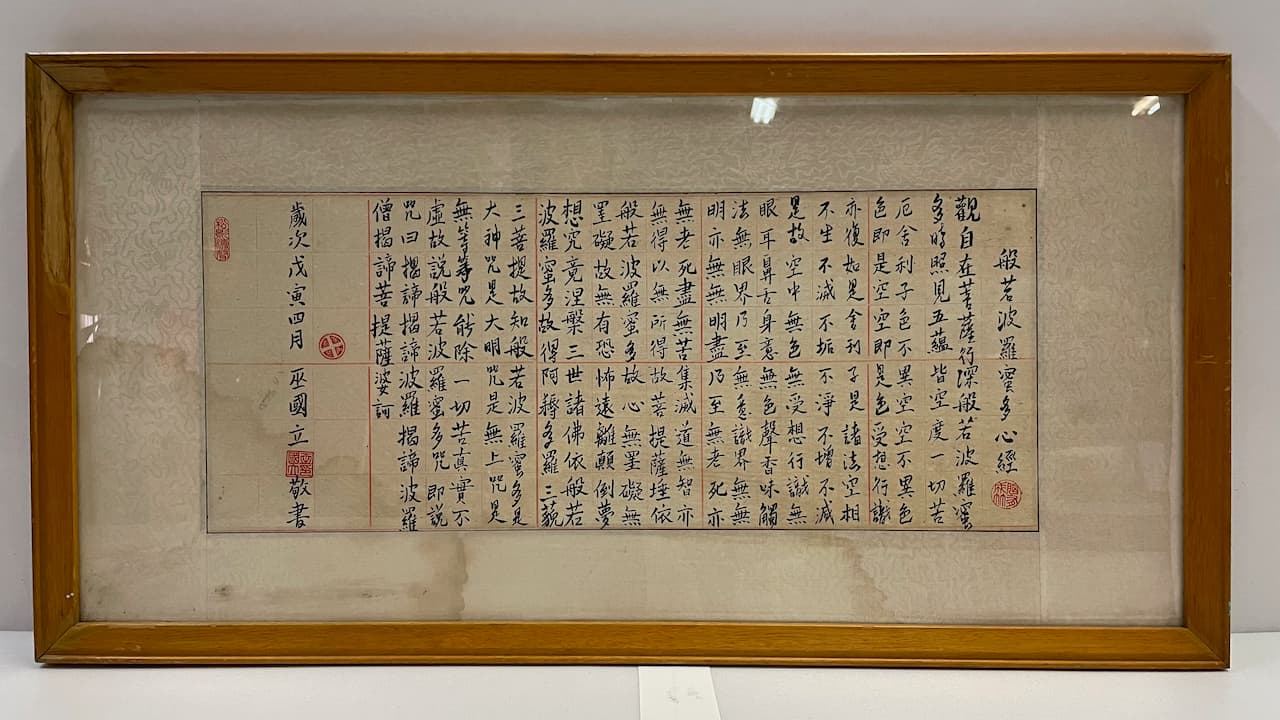 般若波羅蜜多心經
觀自在菩薩行深般若波羅蜜
多時照見五蘊皆空度一切苦
厄舍利子色不異空空不異色
色即是空空即是色受想行識
亦復如是舍利子是諸法空相
不生不滅不垢不淨不增不減
是故空中無色無受想行識無
眼耳鼻舌身意無色聲香味觸
法無眼界乃至無意識界無無
明亦無無明盡乃至無老死亦
無老死盡無苦集滅道無智亦
無得以無所得故菩提薩埵依
般若波羅蜜多故心無罣礙無
罣礙故無有恐怖遠離顛倒夢
想究竟涅槃三世諸佛依般若
波羅蜜多故得阿耨多羅三藐
三菩提故知般若波羅蜜多是
大神咒是大明咒是無上咒是
無等等咒能除一切苦真實不
虛故說般若波羅蜜多咒即說
咒曰揭諦揭諦波羅揭諦波羅
僧揭諦菩提薩婆訶
歲次戊寅四月 巫國立敬書